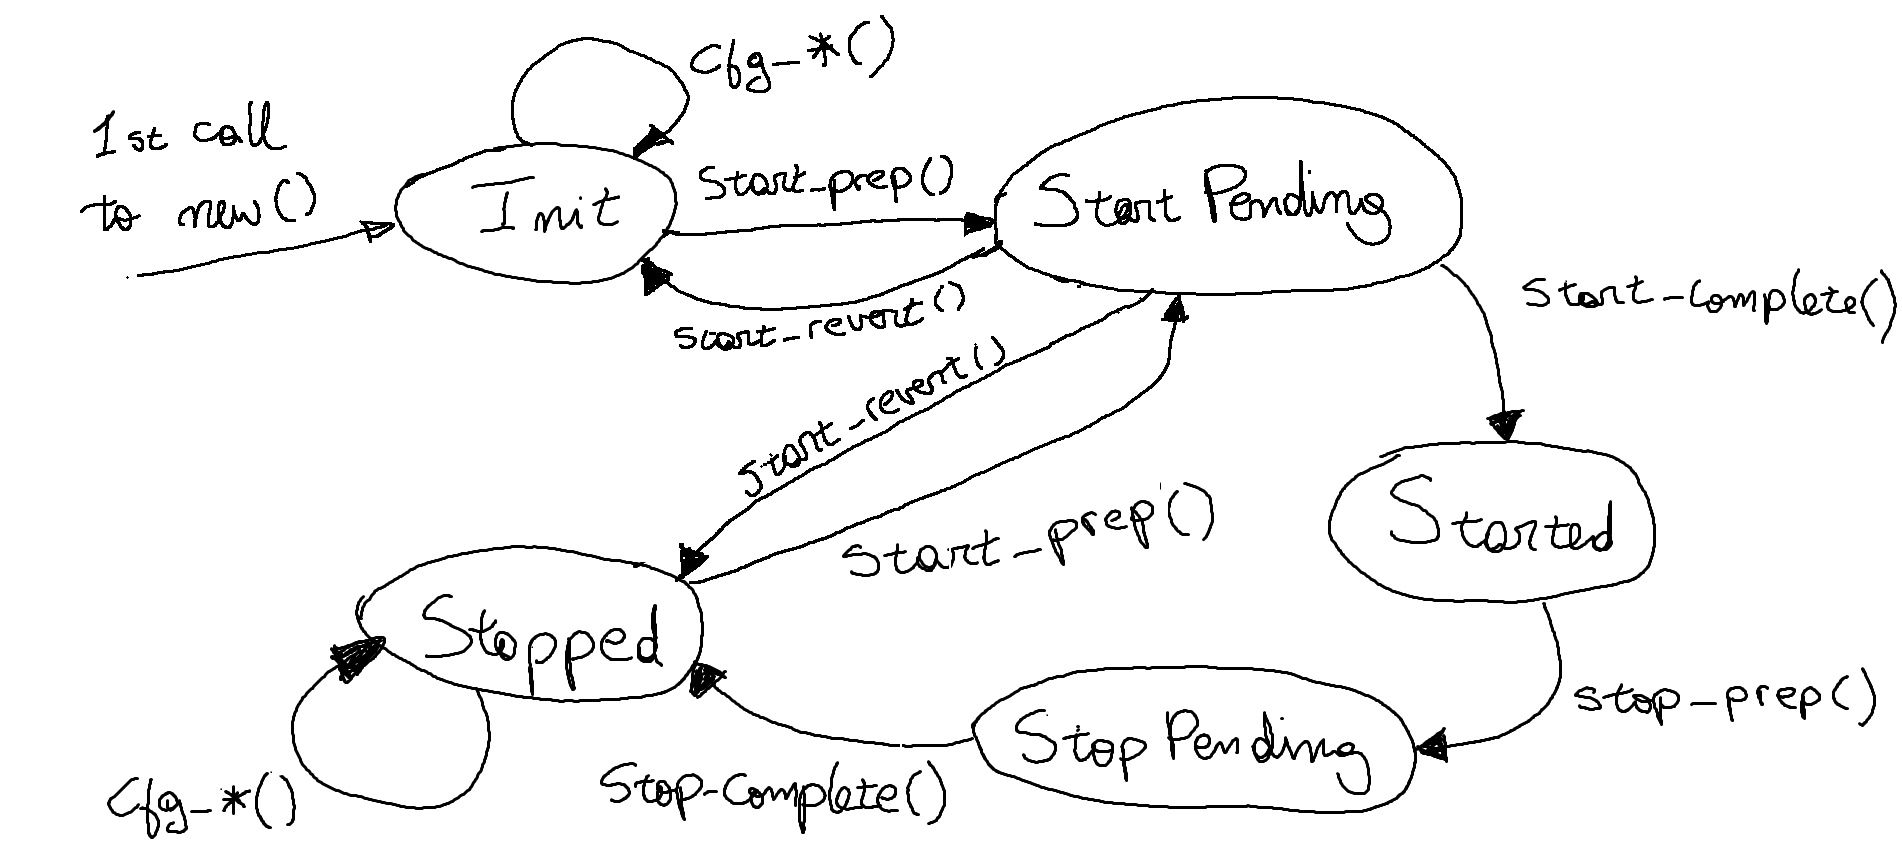 Cfg_*()
1st call
to new()
Init
Start_prep()
Start Pending
start_revert()
Start-complete()
Start_revert()
Start_prep()
Started
Stopped
stop_prep()
Stop Pending
Stop-complete()
Cfg_*()